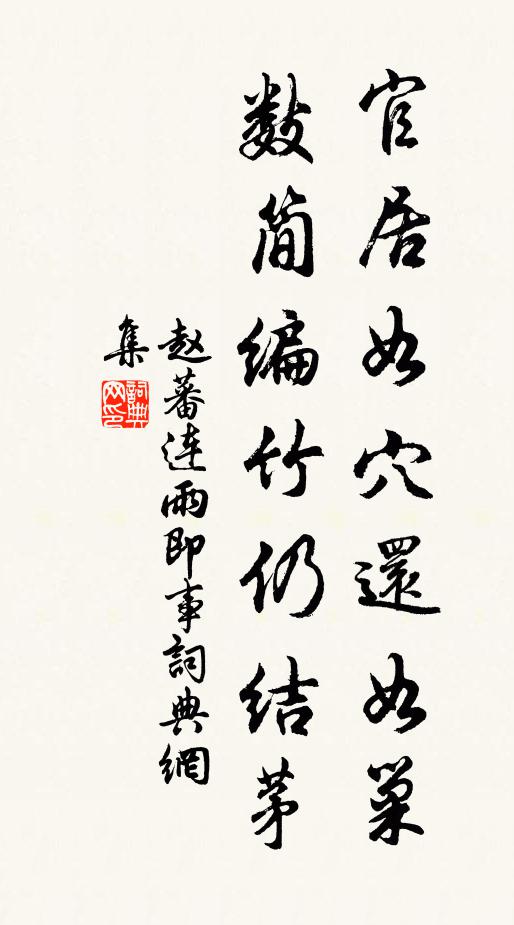 官居如穴還如巢
数简编竹仍结茅
赵蕃连雨即事詞典網
集
詞典
网印